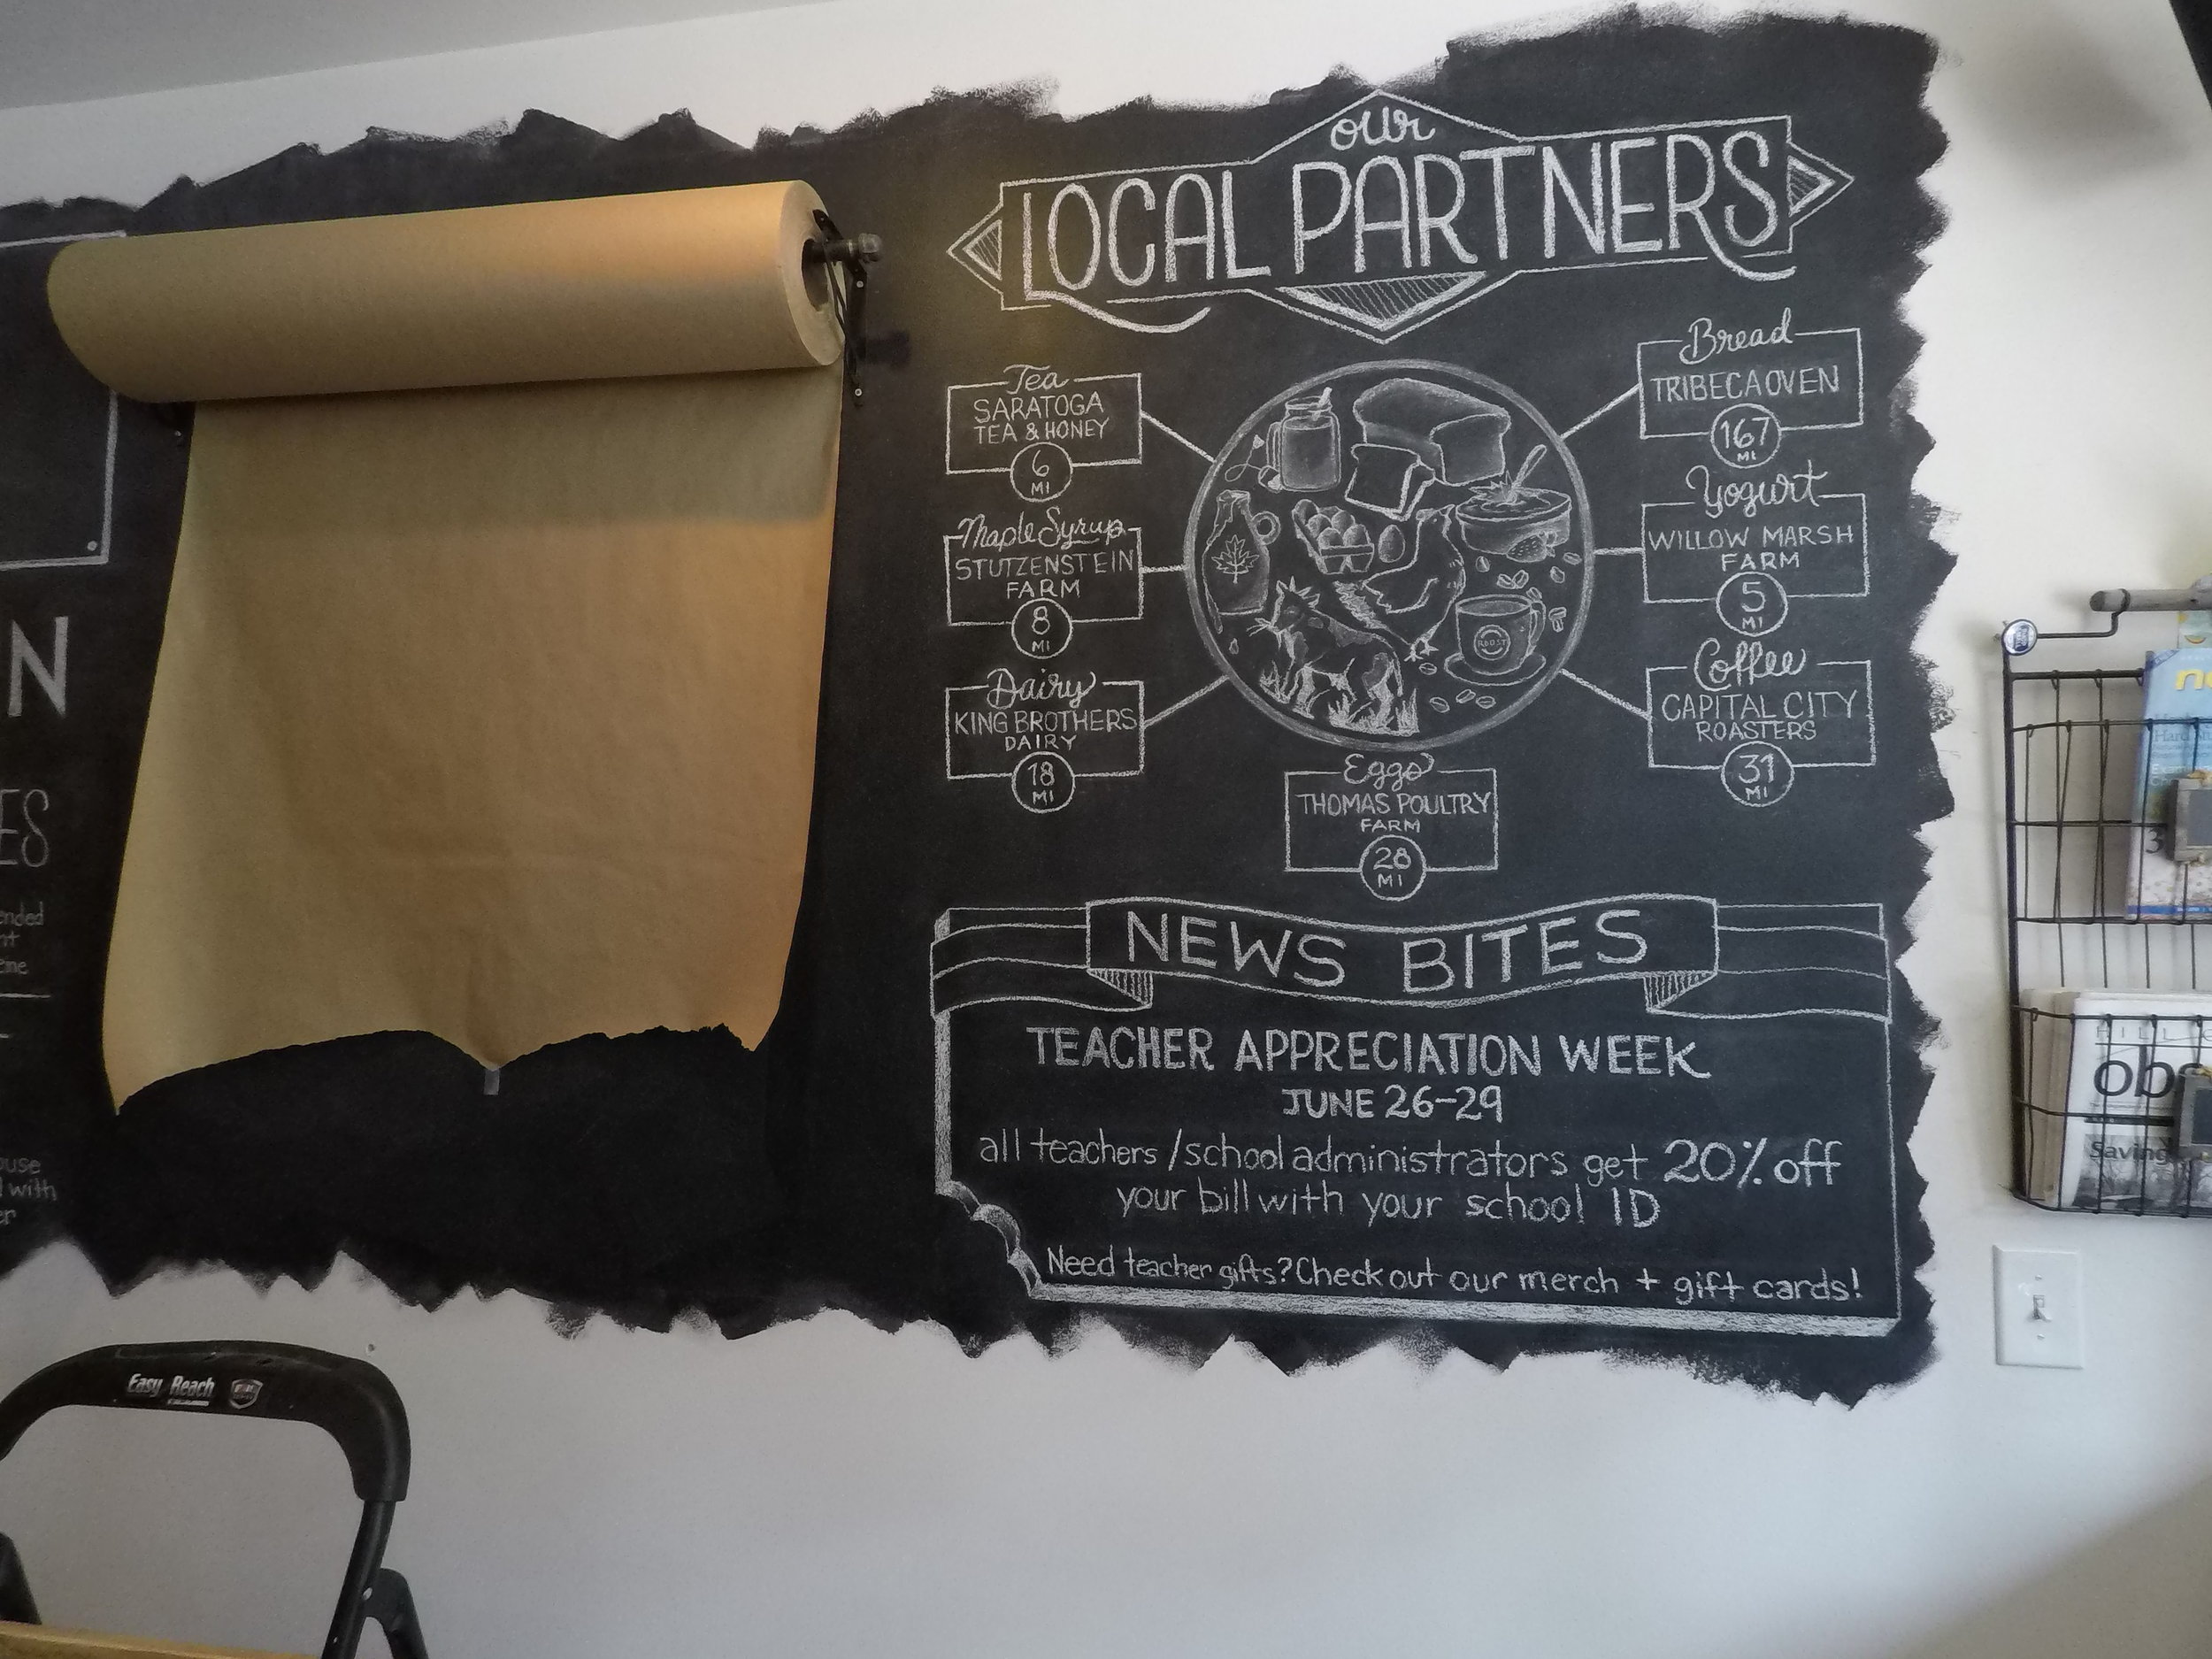 our
LOCAL PARTNERS
Tea
SARATOGA
TEA & HONEY
6
MI
Maple Syrup
STUTZENSTEIN
FARM
8
MI
Dairy
KING BROTHERS
DAIRY
18
MI
Bread
TRIBECA OVEN
167
MI
Yogurt
WILLOW MARSH
FARM
5
MI
Coffee
CAPITAL CITY
ROASTERS
31
MI
Eggs
THOMAS POULTRY
FARM
28
MI
ROOST
NEWS BITES
TEACHER APPRECIATION WEEK
JUNE 26-29
all teachers/school administrators get 20% off
your bill with your school ID
Need teacher gifts? Check out our merch + gift cards!
N
ES
with
Easy Reach
Saving